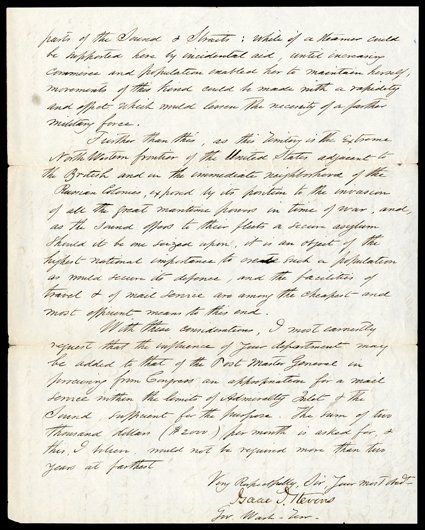 parts of the Sound & Straits; while if a steamer could
be supported here by incidental aid, until increasing
commerce and population enabled her to maintain herself,
movements of this kind could be made with a rapidity
and effect which would lessen the necessity of a farther
military force.
Further than this, as this Territory is the Extreme
North Western frontier of the United States adjacent to
the British and in the immediate neighborhood of the
Russian Colonies, exposed by its position to the invasion
of all the great maritime powers in time of war, and,
as the Sound offers to their fleets a secure asylum
should it be once seized upon, it is an object of the
highest national importance to create such a population
as would secure its defence, and the facilities of
travel & of mail service are among the cheapest and
most efficient means to this end.
With these considerations, I most earnestly
request that the influence of your department may
be added to that of the Post Master General in
procuring from Congress an appropriation for a mail
service within the limits of Admiralty Inlet & the
Sound sufficient for the purpose. The sum of two
thousand dollars ($2000) per month is asked for, &
this, I believe would not be required more than two
years at farthest.
Very Respectfully, Sir Your most Obdt
Isaac I. Stevens
Gov Wash. Terr.